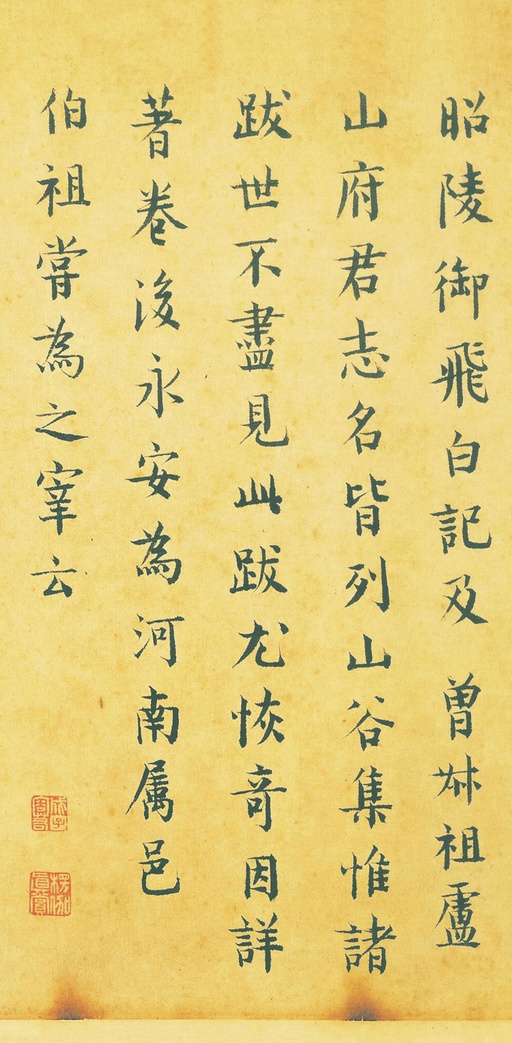 昭陵御飛白記及 曾叔祖盧
山府君志名皆列山谷集惟諸
跋世不盡見此跋尤恢奇因詳
著卷後永安為河南属邑
伯祖嘗為之宰云